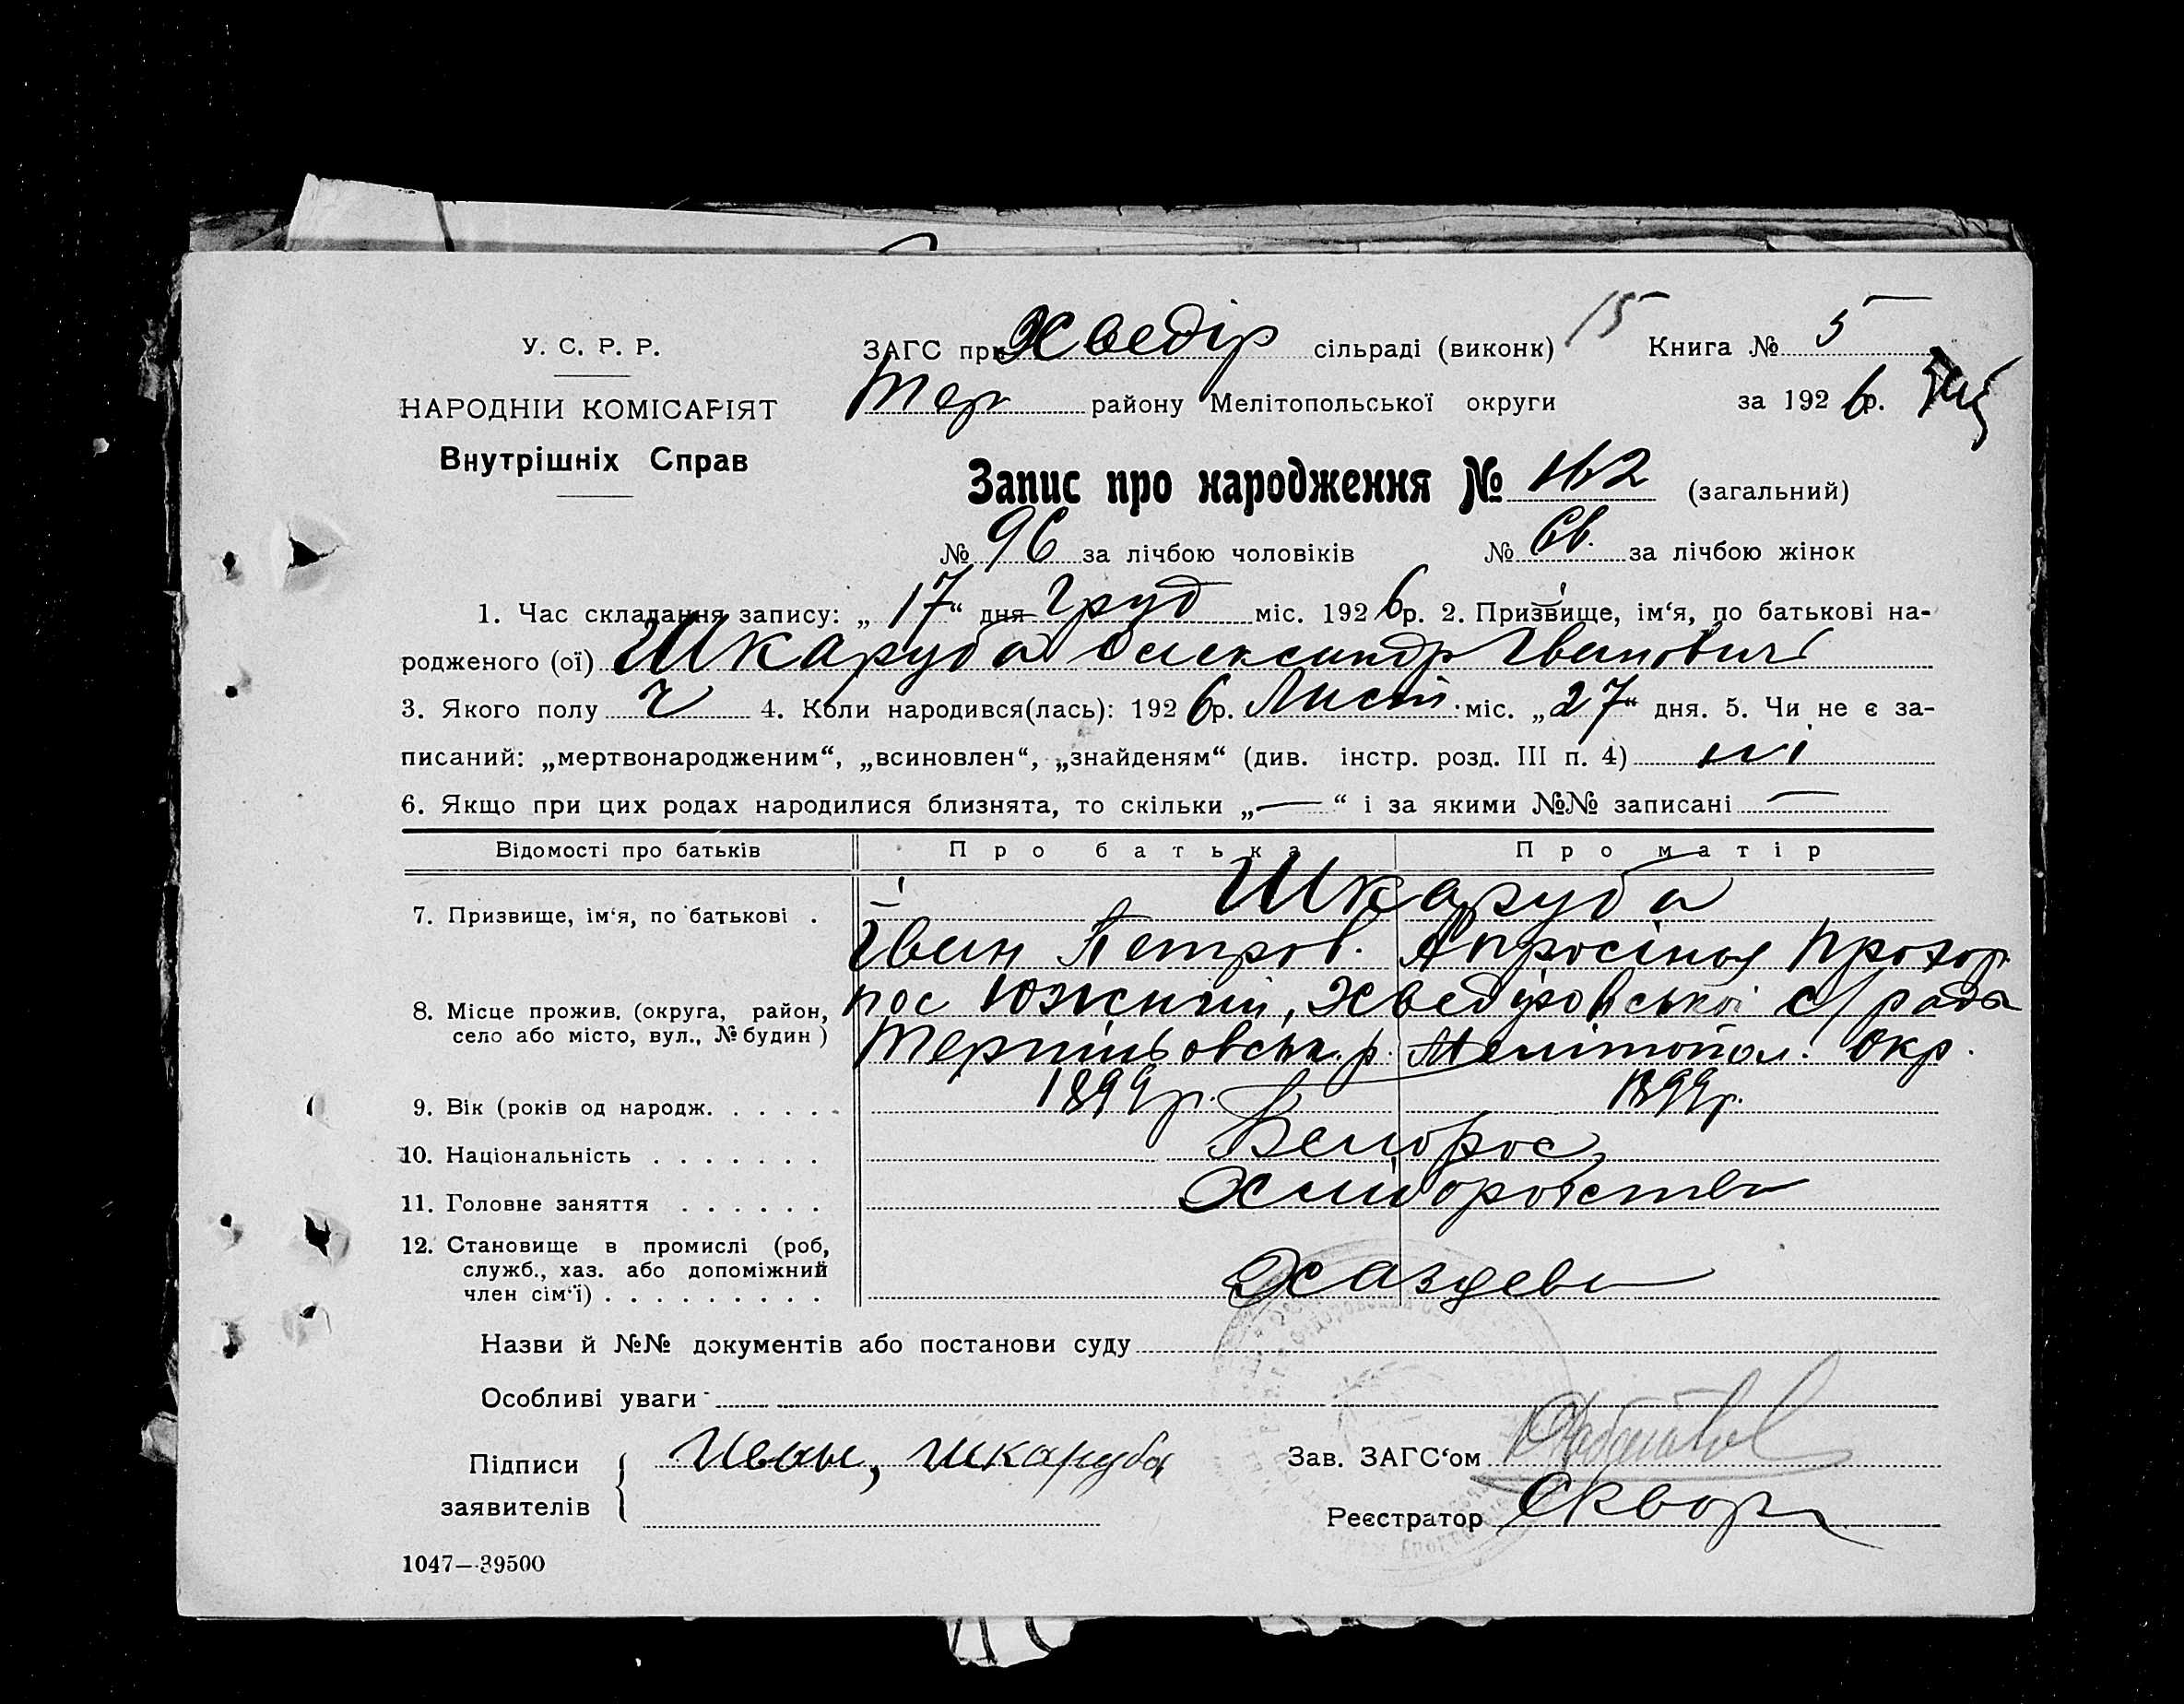 У. С. Р. Р.
НАРОДНІЙ КОМІСАРІЯТ
Внутрішніх Справ
ЗАГС при Хведір сільраді (виконк) 15 Книга № 5
Тер району Мелітопольської округи за 1926 р.
Запис про народження № (загальний)
№ 96 за лічбою чоловіків № за лічбою жінок
1. Час складання запису: „17“ дня Груд міс. 1926 р. 2. Призвище, ім‘я, по батькові на-
родженого (ої) Шкаруба Олександр Іванович
3. Якого полу ч 4. Коли народився(лась): 1926 р. Лист. міс. „27“ дня. 5. Чи не є за-
писаний: „мертвонародженим“, „всиновлен“, „знайденям“ (див. інстр. розд. III п. 4) ні
6. Якщо при цих родах народилися близнята, то скільки „—“ і за якими №№ записані —
Відомості про батьків Про батька Про матір
7. Призвище, ім‘я, по батькові . Шкаруба
Іван Петров. Апросіная Прохор.
8. Місце прожив. (округа, район, село або місто, вул., № будин ) пос Южний, Хведіровської с/ради
Терпіньовськ. р. Мелітопол. Окр.
9. Вік (років од народж. . . . . . 1899 р. 1899 р.
10. Національність . . . . . . .
11. Головне заняття . . . . . . Хліборобство
12. Становище в промислі (роб, служб., хаз. або допоміжний член сім‘ї) . . . . . . . . .
Назви й №№ документів або постанови суду
Особливі уваги
Підписи заявителів Иван, Шкаруба
Зав. ЗАГС‘ом
Реєстратор Сквор
1047—39500